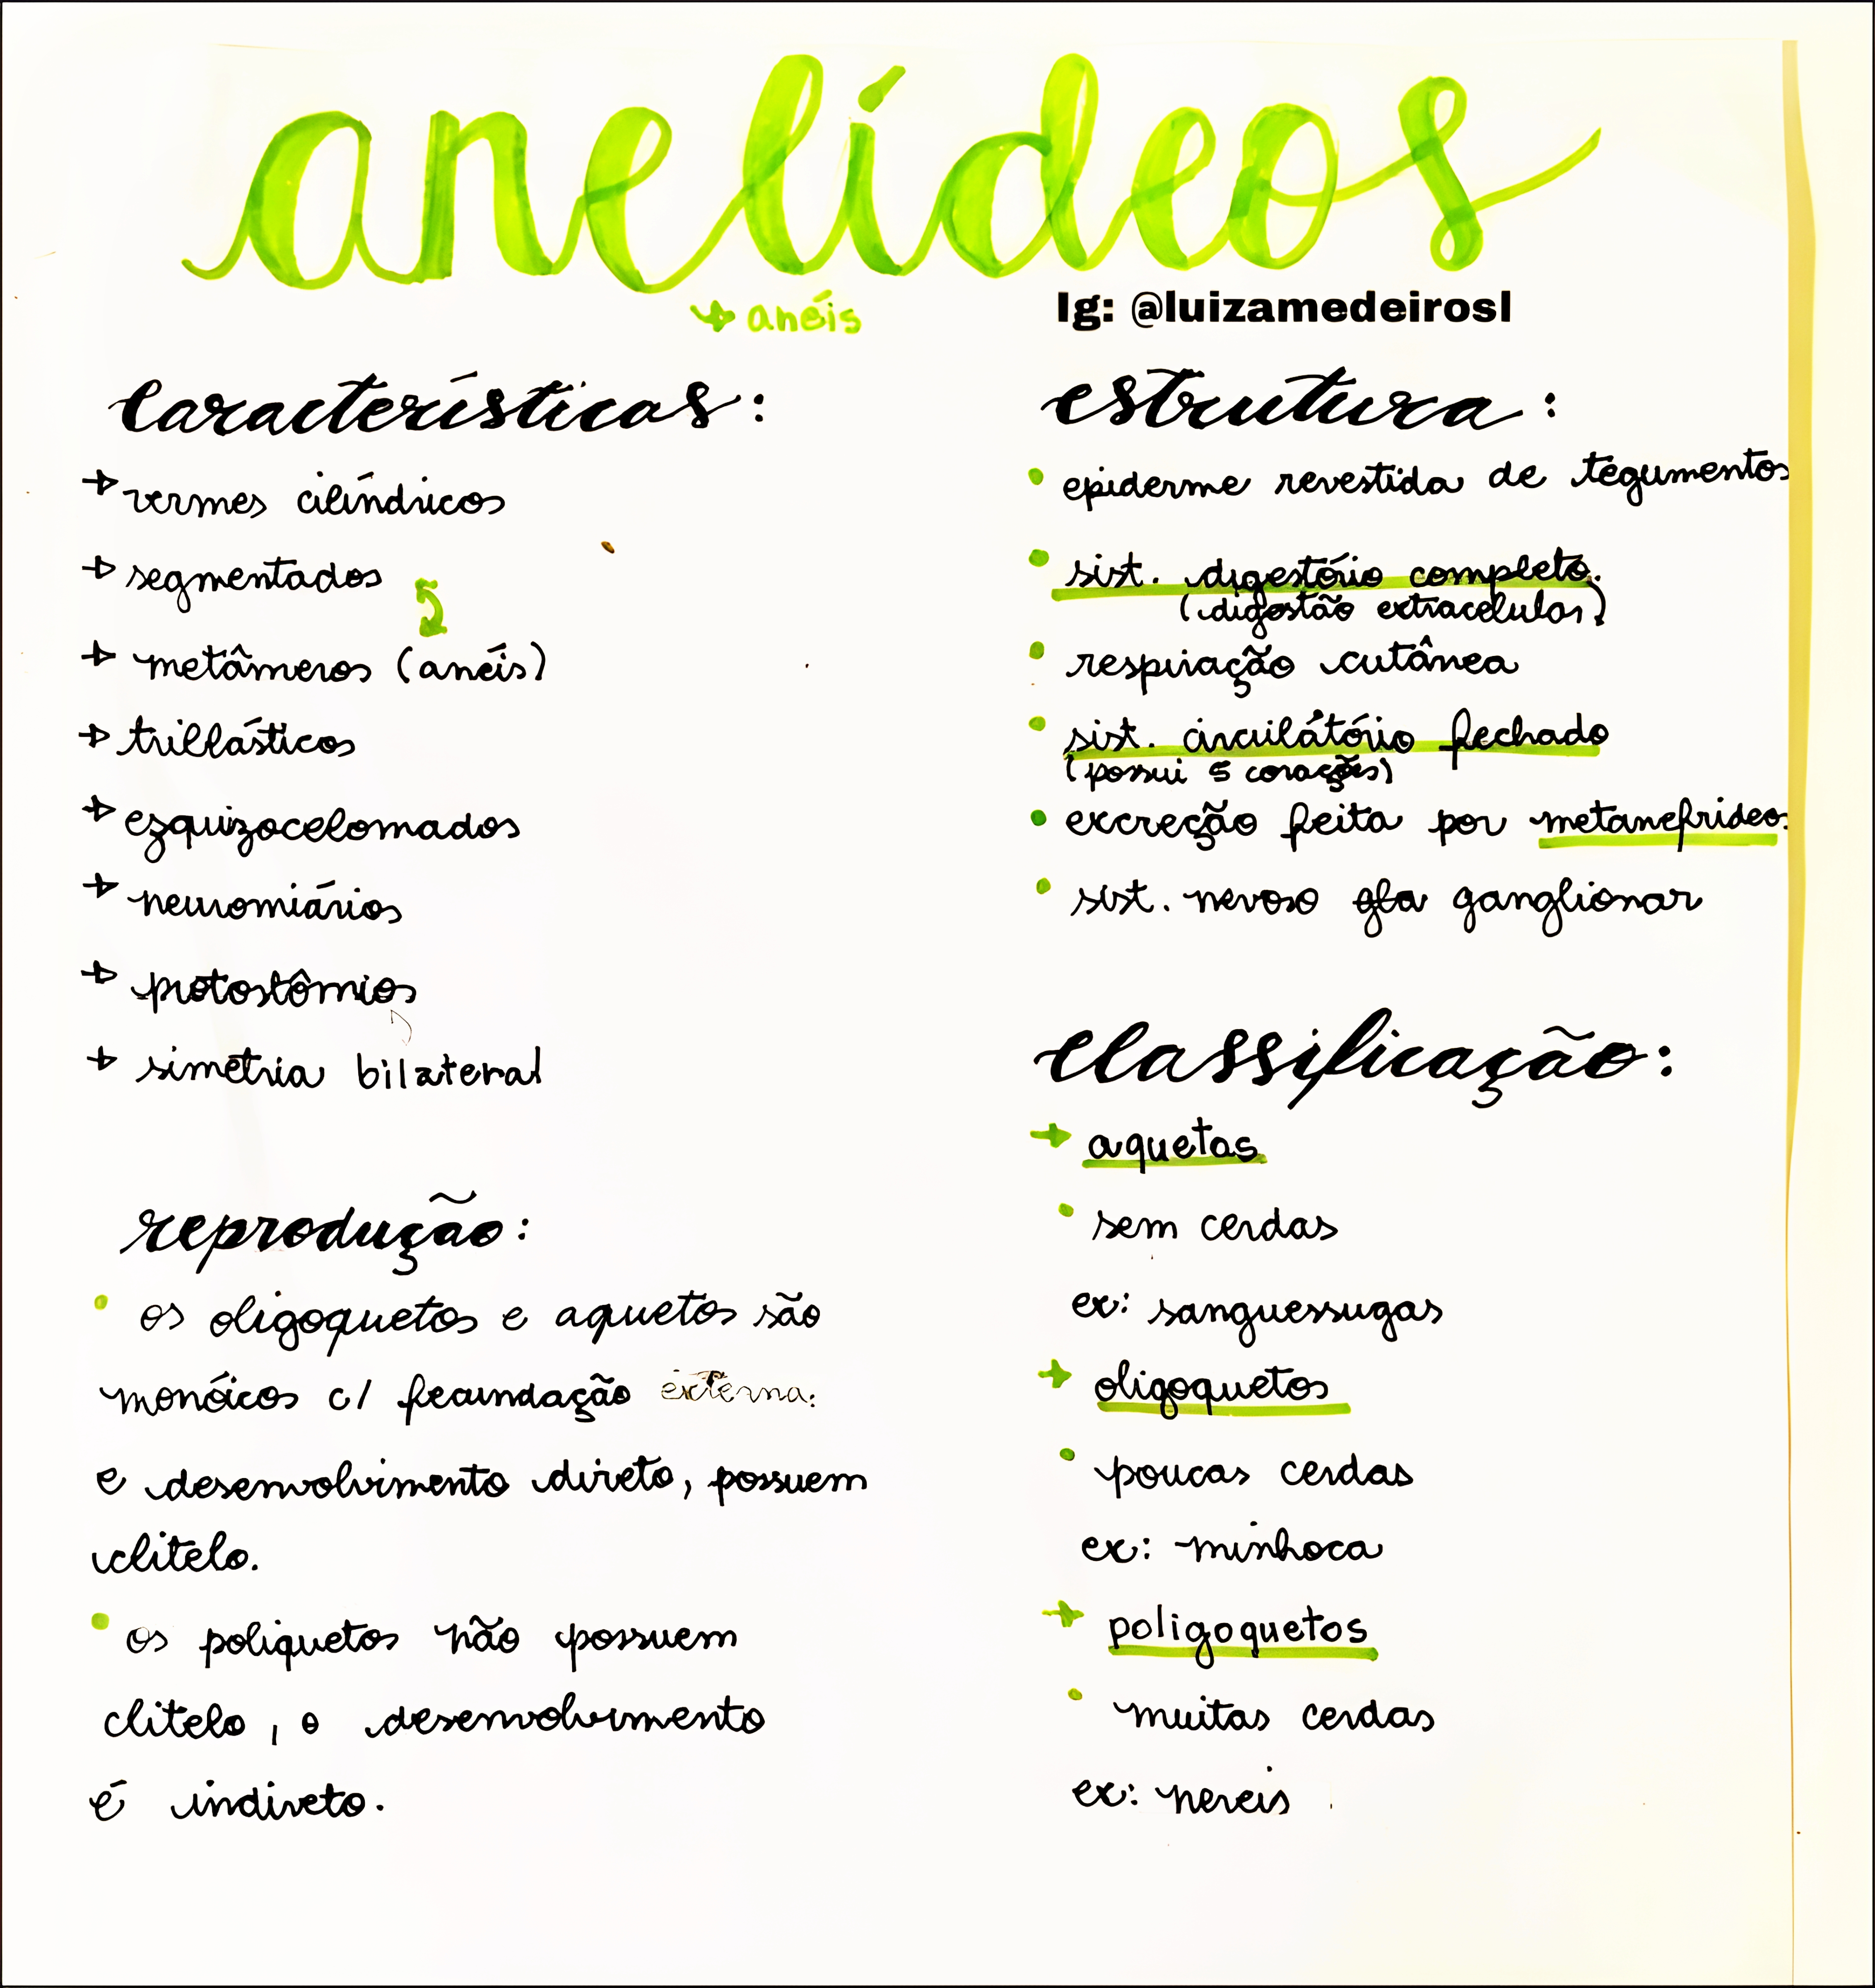 anelídeos
→ anéis
Ig: @luizamedeirosl
características:
→ vermes cilíndricos
→ segmentados
→ metâmeros (anéis)
→ triblásticos
→ ezquizocelomados
→ neuromiários
→ protostômios
→ simetria bilateral
reprodução:
• os oligoquetos e aquetos são
monóicos c/ fecundação externa.
e desenvolvimento direto, possuem
clitelo.
• os poliquetos não possuem
clitelo, o desenvolvimento
é indireto.
estrutura:
• epiderme revestida de tegumentos
• sist. digestório completo.
(digestão extracelular)
• respiração cutânea
• sist. circulátório fechado
(possui 5 corações)
• excreção feita por metanefrídeos
• sist. nevoso ganglionar
classificação:
→ aquetas
• sem cerdas
ex: sanguessugas
→ oligoquetos
• poucas cerdas
ex: minhoca
→ poligoquetos
• muitas cerdas
ex: nereis